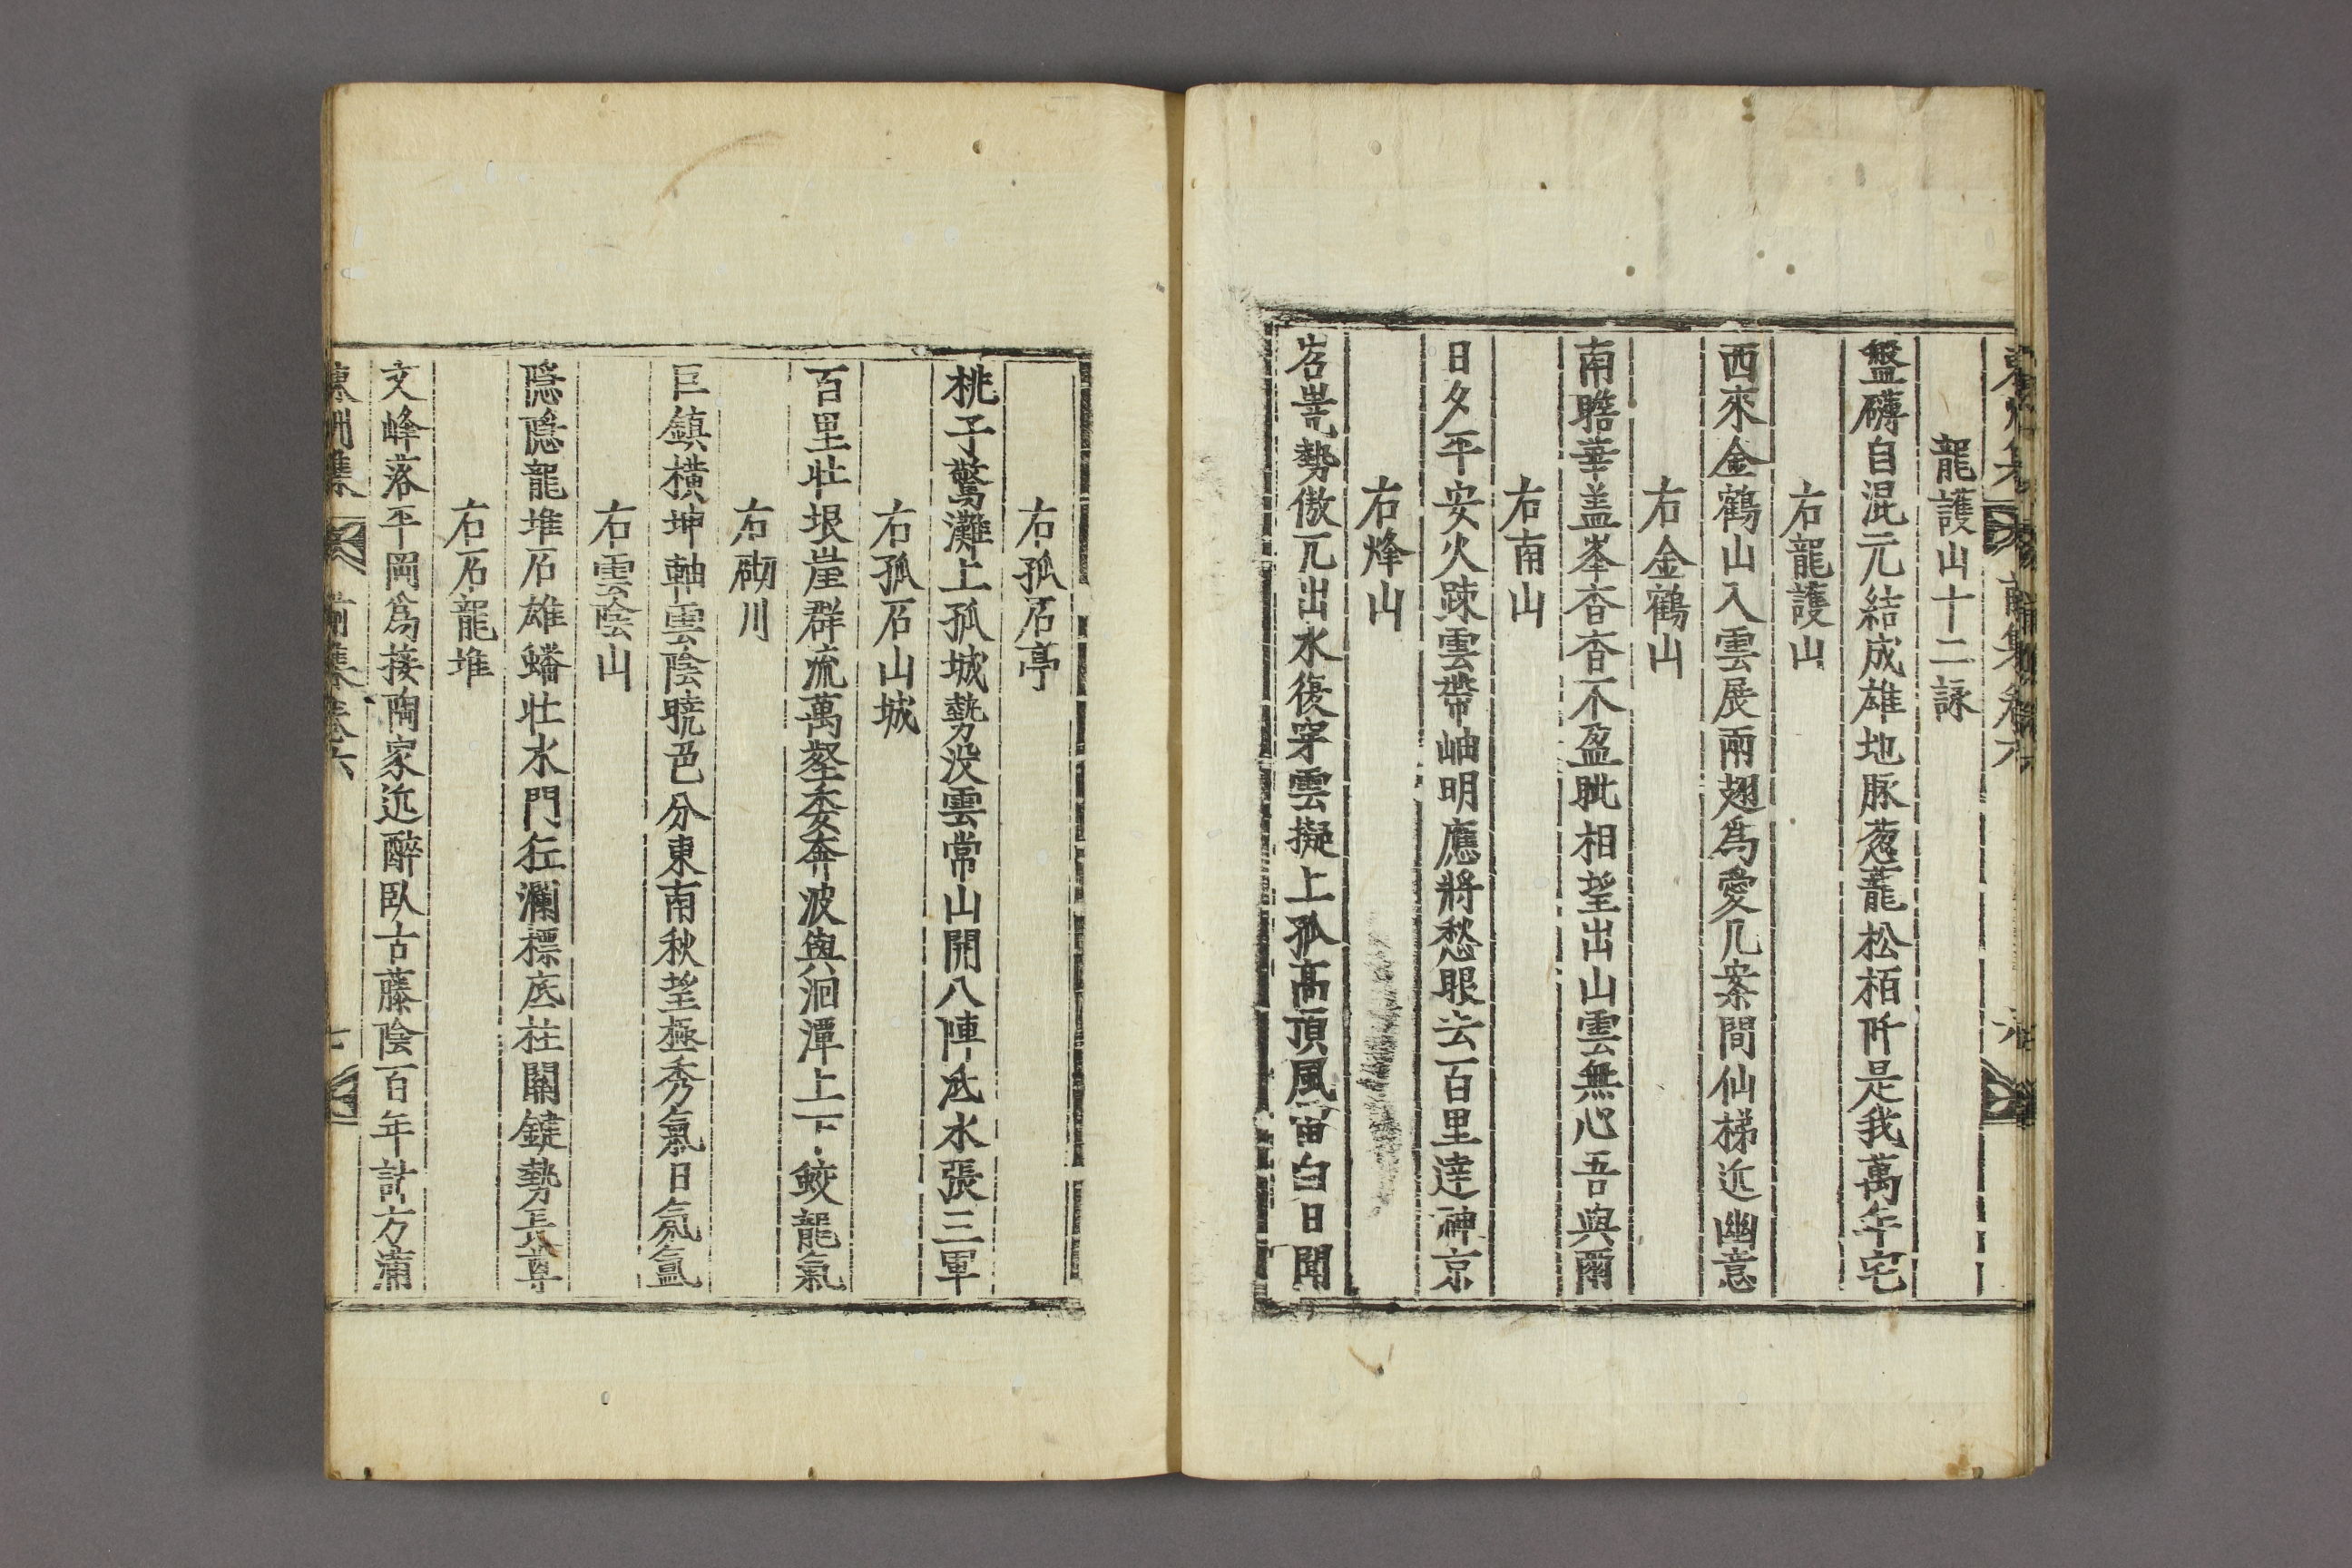 東州集 前集卷六 六
龍護山十二詠
盤礴自混元結成雄地脉葱蘢松栢阡是我萬年宅
右龍護山
西來金鶴山入雲展兩翅爲愛几案間仙梯近幽意
右金鶴山
南瞻華盖峯杳杳不盈眦相望出山雲無心吾與爾
右南山
日夕平安火踈雲帶岫明應將愁眼去一百里達神京
右烽山
岩嵬勢傲兀出水復穿雲擬上孤高頂風雷白日聞
右孤石亭
桃子驚灘上孤城勢没雲常山開八陣汦水張三軍
右孤石山城
百里壯垠崖群流萬壑委奔波與洄潭上下鮫龍氣
右砌川
巨鎮橫坤軸雲陰曉色分東南秋望極秀氣日氛氳
右雲陰山
隱隱龍堆石雄蟠壯水門狂瀾標底柱關鍵勢長尊
右石龍堆
文峰落平岡爲接陶家近醉臥古藤陰百年計方蒲
東州集 前集卷六